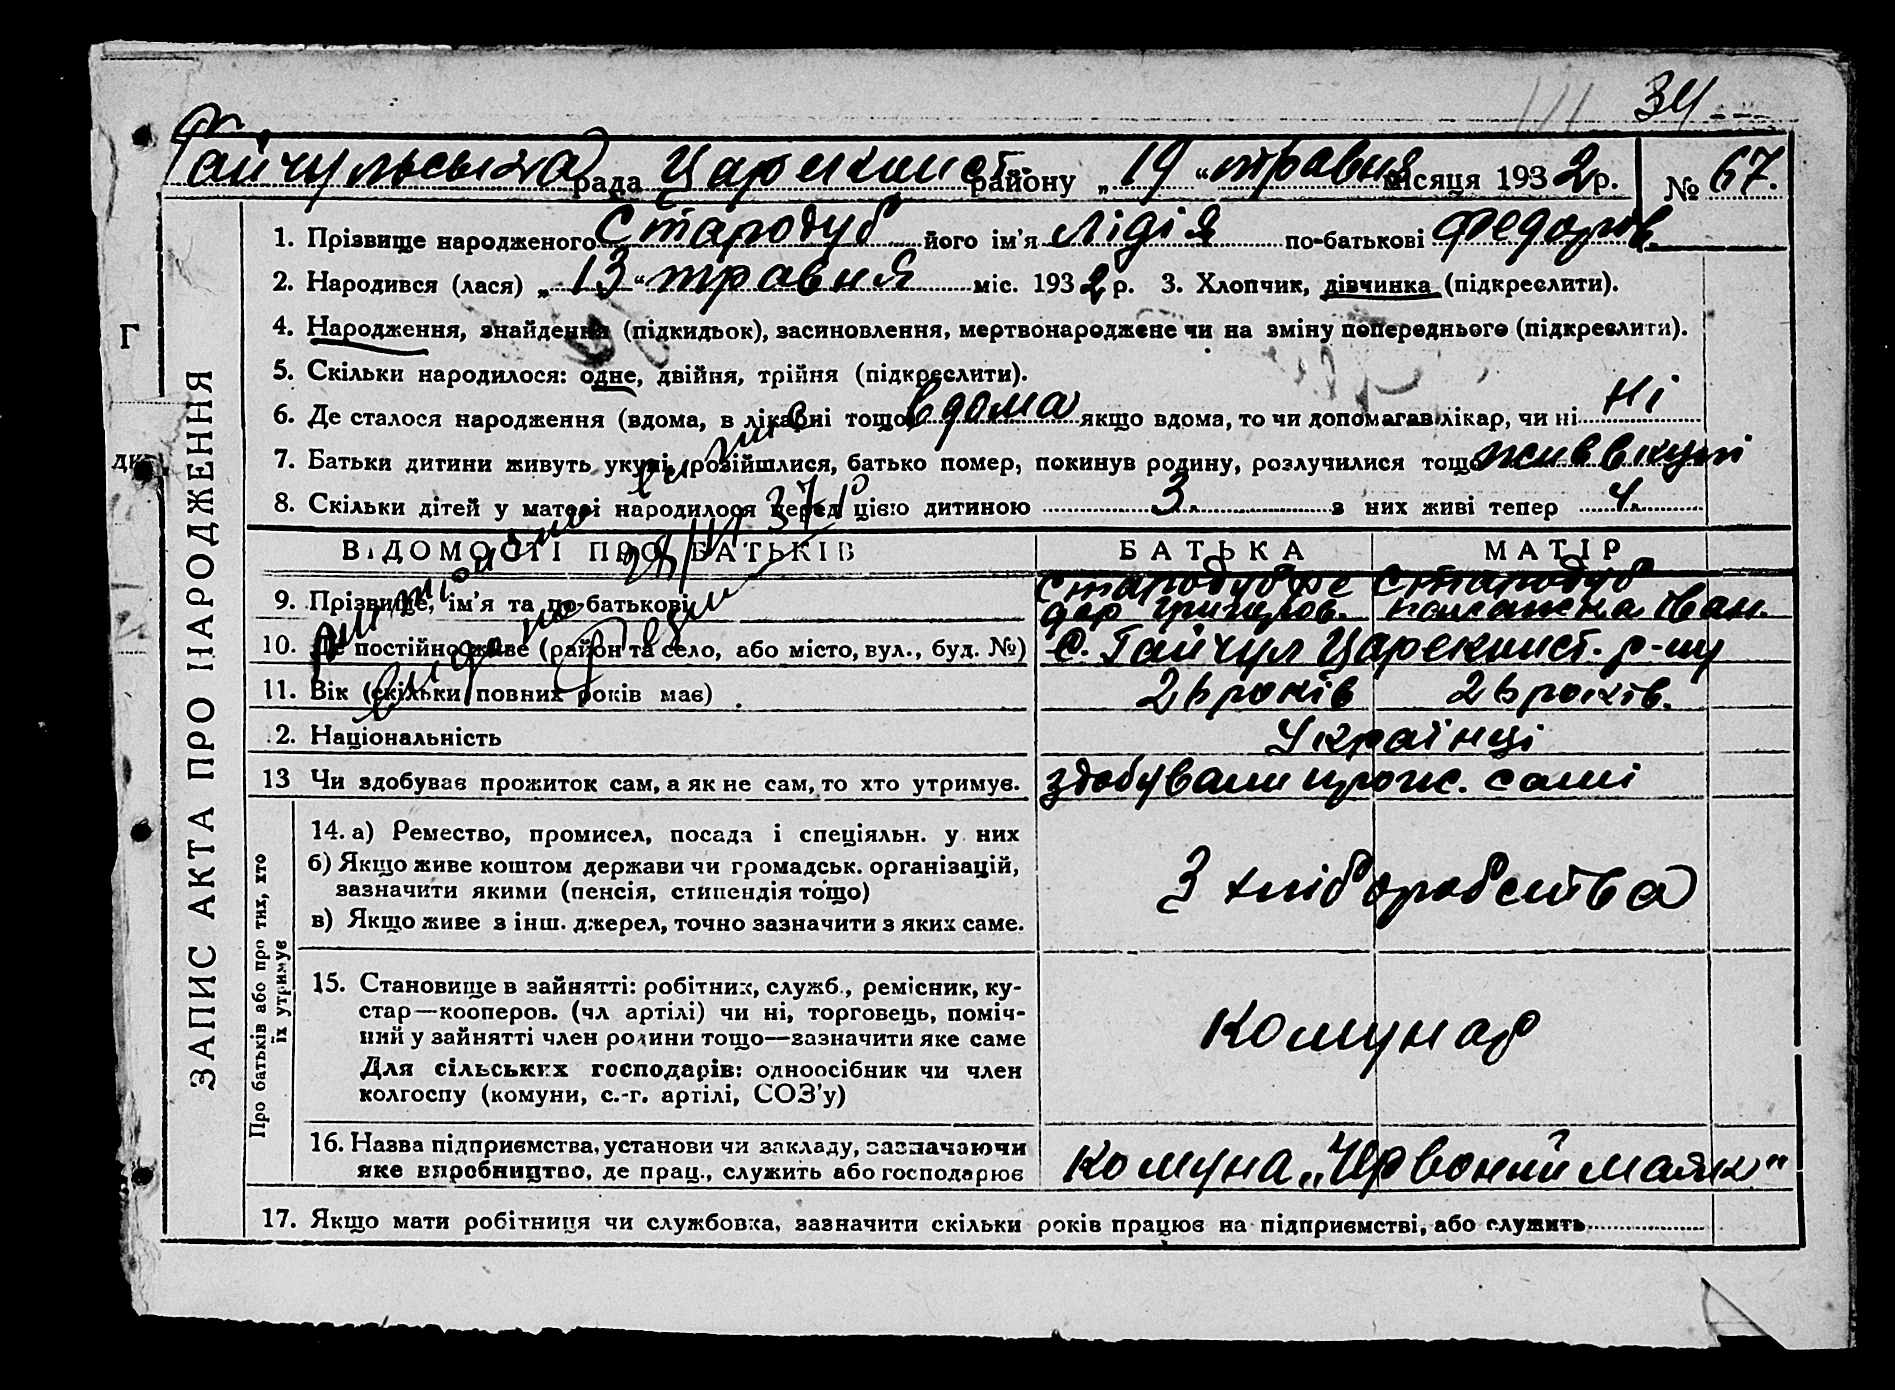 34
Гайчульська рада Царекинст. району „19“ травня місяця 1932 р. № 67.
ЗАПИС АКТА ПРО НАРОДЖЕННЯ
1. Прізвище народженого Стародуб його ім'я Лідія по-батькові Федоров.
2. Народився (лася) „13“ травня міс. 1932 р. 3. Хлопчик, дівчинка (підкреслити).
4. Народження, знайдення (підкидьок), засиновлення, мертвонароджене чи на зміну попереднього (підкреслити).
5. Скільки народилося: одне, двійня, трійня (підкреслити).
6. Де сталося народження (вдома, в лікарні тощо) вдома якщо вдома, то чи допомагав лікар, чи ні ні
7. Батьки дитини живуть укупі, розійшлися, батько помер, покинув родину, розлучилися тощо жив вкупі
8. Скільки дітей у матері народилося перед цією дитиною 3 з них живі тепер 4
ВІДОМОСТІ ПРО БАТЬКІВ БАТЬКА МАТІР
9. Прізвище, ім'я та по-батькові Стародуб Фе Стародуб
дор Григоров. Палажка Іван.
10. Де постійно живе (район та село, або місто, вул., буд. №) С. Гайчул Царекинст. р-ну
11. Вік (скільки повних років має) 26 років 26 років.
2. Національність Українці
13 Чи здобуває прожиток сам, а як не сам, то хто утримує. здобували прож. самі
Про батьків або про тих, хто
їх утримує
14. а) Ремество, промисел, посада і спеціяльн. у них
б) Якщо живе коштом держави чи громадськ. організацій,
зазначити якими (пенсія, стипендія тощо)
З хліборобства
в) Якщо живе з інш. джерел, точно зазначити з яких саме.
15. Становище в зайнятті: робітник, служб., ремісник, ку-
стар—кооперов. (чл артілі) чи ні, торговець, поміч-
ний у зайнятті член родини тощо—зазначити яке саме
Комунар
Для сільських господарів: одноосібник чи член
колгоспу (комуни, с.-г. артілі, СОЗ'у)
16. Назва підприємства, установи чи закладу, зазначаючи
яке виробництво, де прац., служить або господарює Комуна „Червоний маяк“
17. Якщо мати робітниця чи службовка, зазначити скільки років працює на підприємстві, або служить